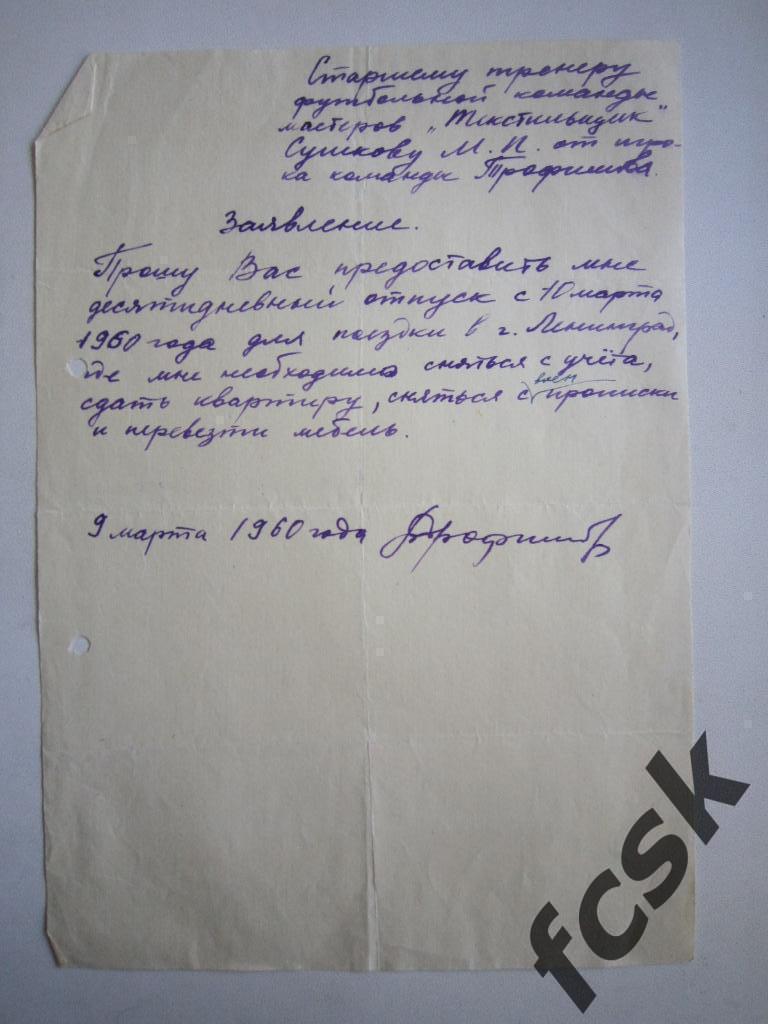 Старшему тренеру
футбольной команды
мастеров „Текстильщик"
Сушкову М. П. от игро-
ка команды Трофимова.
Заявление.
Прошу Вас предоставить мне
десятидневный отпуск с 10 марта
1960 года для поездки в г. Ленинград,
где мне необходимо сняться с учёта,
сдать квартиру, сняться с прописки
и перевезти мебель.
9 марта 1960 года Трофимов
fcsk